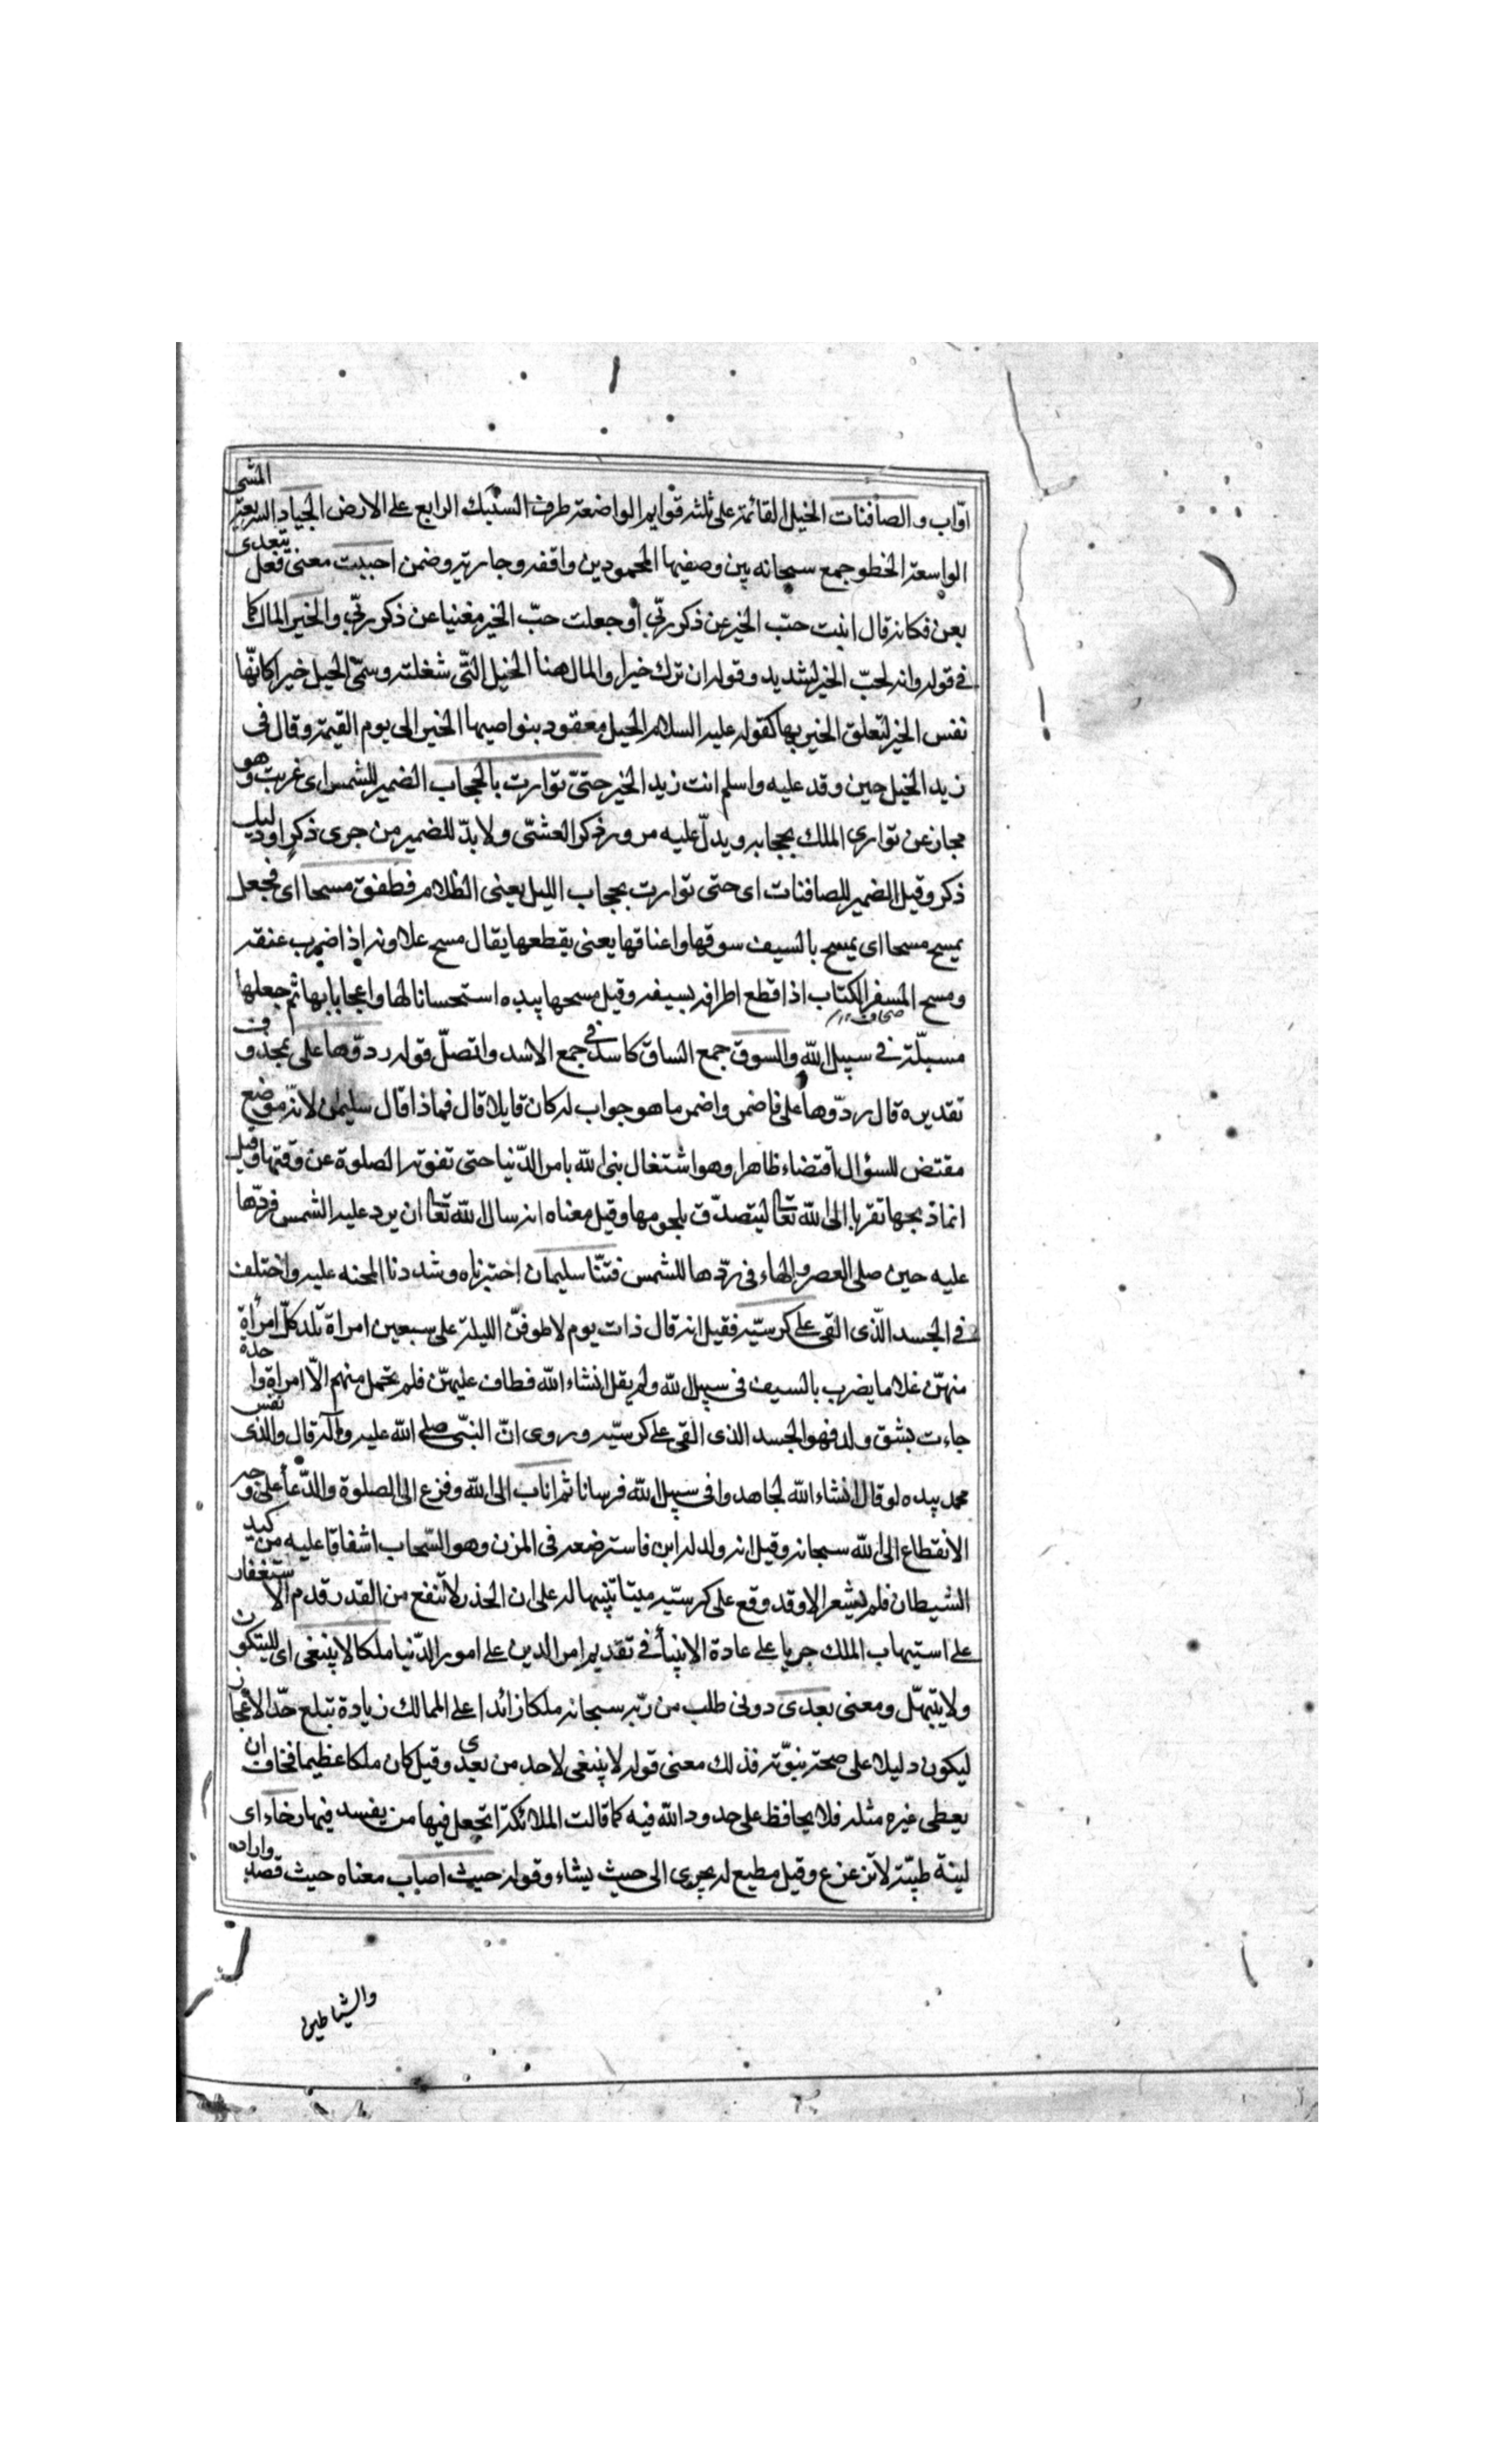 اوّاب والصافنات الخيل القائمة على ثلثه قوايم الواضعة طرف السنبك الرابع على الارض الجياد السريعة المشى
الواسعة الخطو جمع سبحانه بين وصفيها المحمودين واقفه وجارية وضمن احببت معنى فعل يتعدى
بعن فكانه قال انبت حبّ الخير عن ذكر ربّى أو جعلت حبّ الخير مغنيا عن ذكر ربّى والخير المال كما
فى قوله وانه لحبّ الخير لشديد وقوله ان ترك خيرا والمال هنا الخيل التّى شغلته وسمّى الخيل خيرا كانّها
نفس الخير لتعلق الخير بها كقوله عليه السلام الخيل معقود بنواصيها الخير الى يوم القيمة وقال فى
زيد الخيل حين وفد عليه واسلم انت زيد الخير حتىّ توارت بالحجاب الضمير للشمس اى غربت وهو
مجاز عن توارى الملك بحجابه ويدلّ عليه مرور ذكر العشىّ ولا بدّ للضمير من جرى ذكر او دليل
ذكر وقيل الضمير للصافنات اى حتى توارت بحجاب الليل يعنى الظلام فطفق مسحا اى فجعل
يمسح مسحا اى يمسح بالسيف سوقها واعناقها يعنى يقطعها يقال مسح علاوته اذا ضرب عنقه
ومسح المسفر الكتاب اذا قطع اطرافه بسيفه وقيل مسحها بيده استحسانا لها واعجابا بها ثم جعلها
صحاف
مسبلّة فى سبيل الله والسوق جمع الساق كاسد فى جمع الاسد واتصلّ قوله ردوّها على بمحذوف
تقديره قال ردّوها على فاضمر واضمر ما هو جواب له كان قايلا قال فماذا قال سليمان لانّه موضع
مقتض للسؤال اقتضاء ظاهرا وهو اشتغال بنى الله بامر الدّنيا حتى تفوته الصلوة عن وقتها وقيل
انما ذبحها تقربا الى الله تعا ليتصدّق بلحومها وقيل معناه انه سال الله تعا ان يرد عليه الشمس فردّها
عليه حين صلى العصر والهاء فى ردّها للشمس فتنّا سليمان اختبرناه وشددنا المحنه عليه واختلف
فى الجسد الّذى القى على كرسيّه فقيل انه قال ذات يوم لاطوفنّ الليلة على سبعين امراة تلد كلّ امرأة
منهنّ غلاما يضرب بالسيف فى سبيل الله ولم يقل انشاء الله فطاف عليهنّ فلم تحمل منهم الاّ امراة واحدة
جاءت بشق ولد فهو الجسد الذى القى على كرسيّه وروى انّ النبّى صلى الله عليه وآله قال والذى نفس
محمد بيده لو قال انشاء الله لجاهدوا فى سبيل الله فرسانا ثم اناب الى الله وفزع الى الصلوة والدّعأ على وجه
الانقطاع الى الله سبحانه وقيل انه ولد له ابن فاسترضعه فى المزن وهو السّحاب اشفاقا عليه من كيد
الشيطان فلم يشعر الا وقد وقع على كرسيّه ميتا تنبيها له على ان الحذر لا تنفع من القدر قدم الاستغفار
على استيهاب الملك جريا على عادة الانبيأ فى تقديم امر الدين على امور الدّنيا ملكا لا ينبغى اى لايتكون
ولا يتبهّل ومعنى بعدى دونى طلب من ربّه سبحانه ملكا زائدا على الممالك زيادة تبلغ حدّ الاعجاز
ليكون دليلا على صحة نبوّته فذلك معنى قوله لا ينبغى لاحد من بعدى وقيل كان ملكا عظيما فخاف ان
يعطى غيره مثله فلا يحافظ على حدود الله فيه كما قالت الملائكة اتجعل فيها من يفسد فيها رخاء اى
لينة طيبّة لا تزعزع وقيل مطيع له يجرى الى حيث يشاء وقوله حيث اصاب معناه حيث قصد واراد
والشياطين